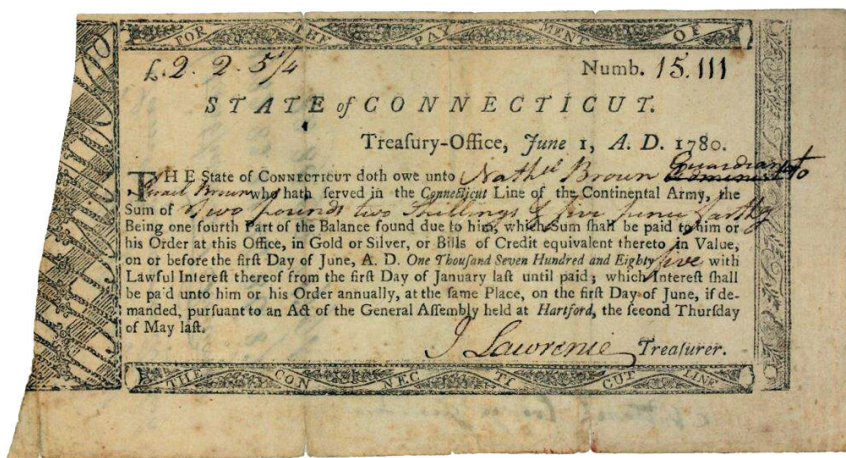 FOR THE PAYMENT OF
£.2.2.5 1/4
Numb. 15.111
STATE of CONNECTICUT.
Treasury-Office, June 1, A. D. 1780.
THE State of CONNECTICUT doth owe unto Nathll Brown Guardian to
Israel Brown who hath ſerved in the Connecticut Line of the Continental Army, the
Sum of Two pounds two Shillings & five pence farthg
Being one fourth Part of the Balance found due to him, which Sum ſhall be paid to him or
his Order at this Office, in Gold or Silver, or Bills of Credit equivalent thereto in Value,
on or before the firſt Day of June, A. D. One Thouſand Seven Hundred and Eighty five with
Lawful Intereſt thereof from the firſt Day of January laſt until paid; which Intereſt ſhall
be paid unto him or his Order annually, at the ſame Place, on the firſt Day of June, if de-
manded, purſuant to an Act of the General Aſſembly held at Hartford, the ſecond Thurſday
of May laſt.
J Lawrence Treaſurer.
THE CONNECTICUT LINE